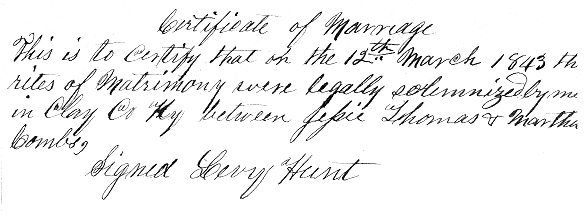 Certificate of Marriage
This is to certify that on the 12th March 1843 th
rites of Matrimony were legally solemnized by me
in Clay Co Ky between Jessie Thomas & Martha
Combs,
Signed Levy Hunt